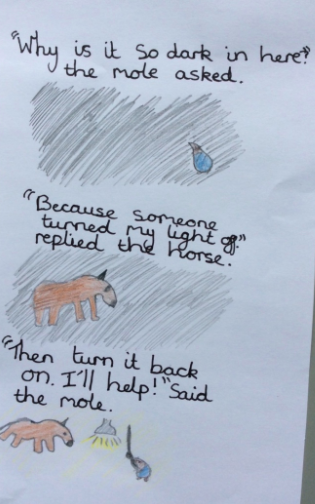 "Why is it so dark in here?"
the mole asked.
"Because someone
turned my light off"
replied the horse.
"Then turn it back
on. I'll help!" Said
the mole.